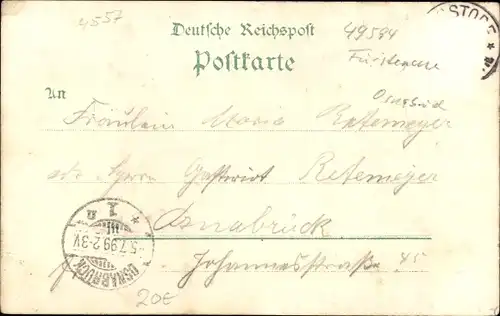 4557
Deutsche Reichspost
49594
STOCK
Postkarte
Fürstenau
An
Osnabrück
Fräulein Maria Retemeyer
Herrn Gastwirt Retemeyer
Osnabrück
Johannesstraße 45
OSNABRÜCK 1 n
5.7.99.2-3V.
20E